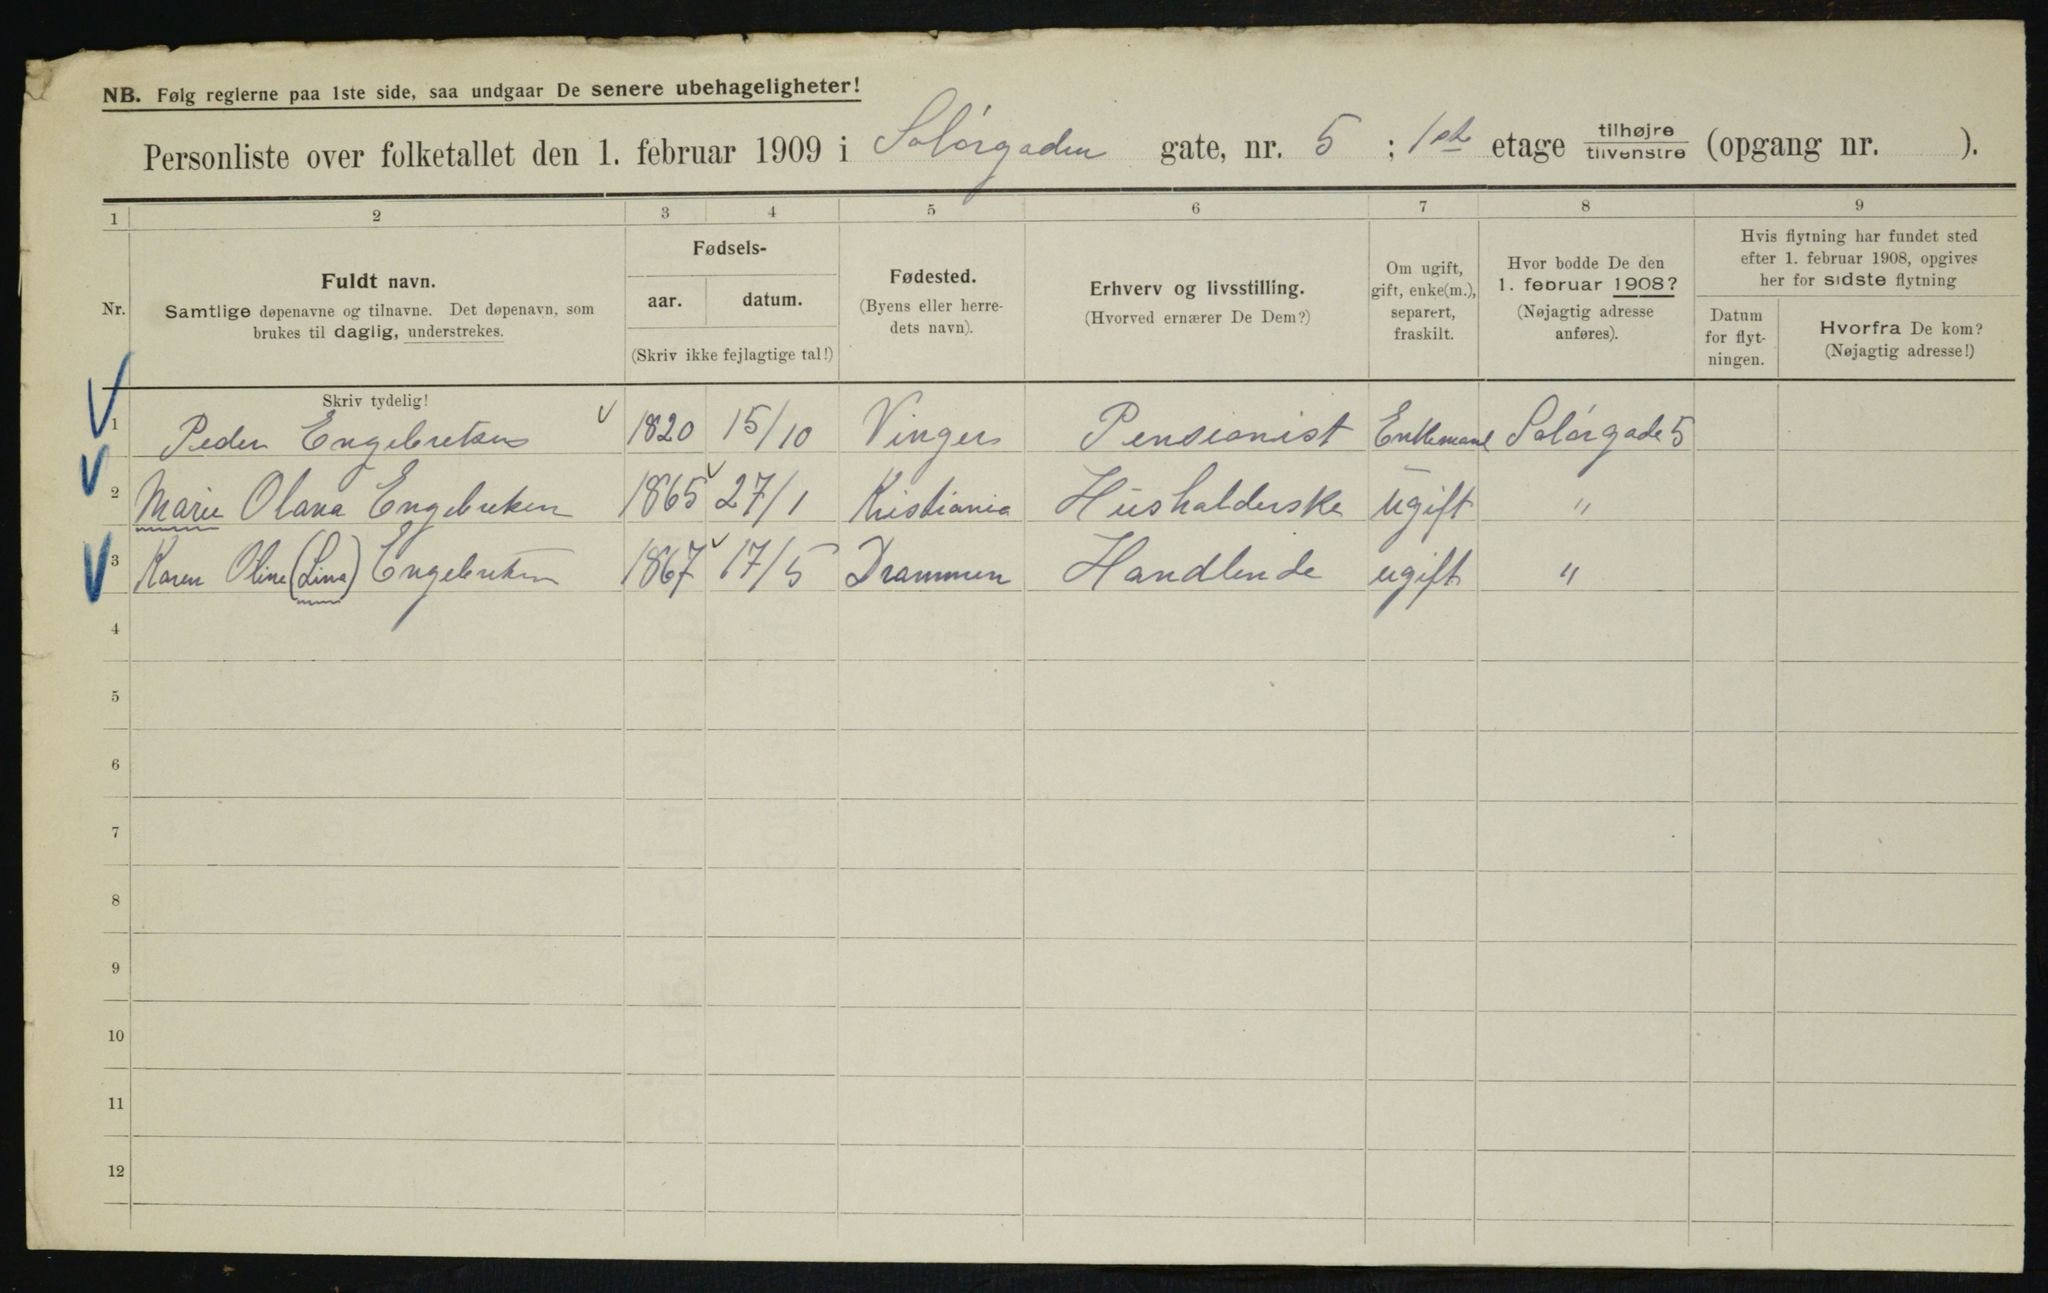 NB. Følg reglerne paa 1ste side, saa undgaar De senere ubehageligheter!
Personliste over folketallet den 1. februar 1909 i Solørgaden gate, nr. 5 ; 1ste etage tilhøjre/tilvenstre (opgang nr. ).
1 2 3 4 5 6 7 8 9
Nr.
Fuldt navn.
Samtlige døpenavne og tilnavne. Det døpenavn, som
brukes til daglig, understrekes.
Fødsels-
aar. datum.
(Skriv ikke fejlagtige tal!)
Fødested.
(Byens eller herre-
dets navn).
Erhverv og livsstilling.
(Hvorved ernærer De Dem?)
Om ugift,
gift, enke(m.),
separert,
fraskilt.
Hvor bodde De den
1. februar 1908?
(Nøjagtig adresse
anføres).
Hvis flytning har fundet sted
efter 1. februar 1908, opgives
her for sidste flytning
Datum
for flyt-
ningen.
Hvorfra De kom?
(Nøjagtig adresse!)
Skriv tydelig!
1 Peder Engebretsen 1820 15/10 Vinger Pensionist Enkemand Solørgade 5
2 Marie Olava Engebretsen 1865 27/1 Kristiania Husholderske ugift "
3 Karen Oline (Lina) Engebretsen 1867 17/5 Drammen Handlende ugift "
4
5
6
7
8
9
10
11
12